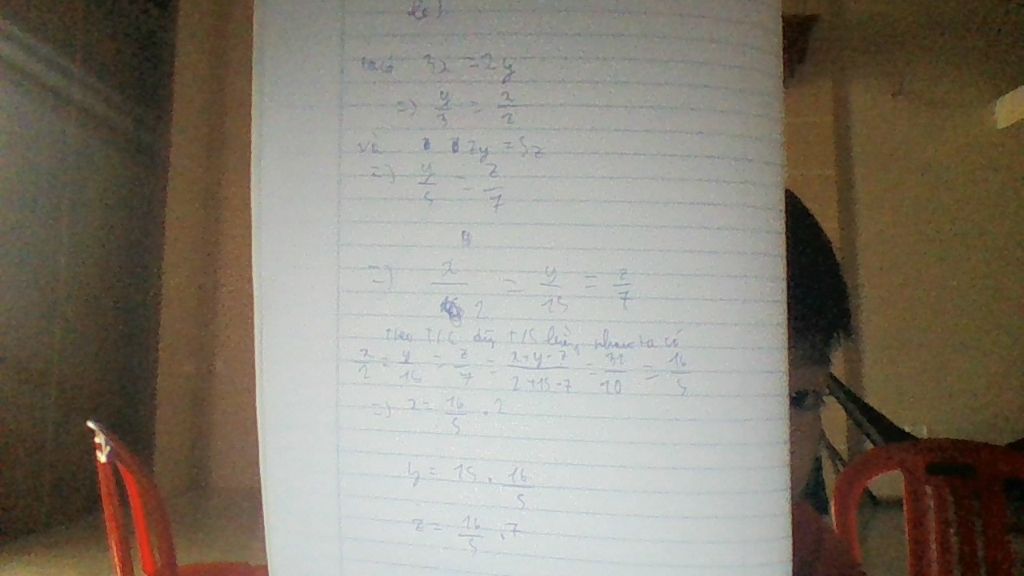 ta có 3x = 2y
=> y/3 = x/2
và 7y = 5z
=> y/5 = z/7
=> x/2 = y/15 = z/7
theo T/C dãy T/S bằng nhau ta có
x/2 = y/15 = z/7 = x+y-z/2+15-7 = 32/10 = 16/5
=> x = 16/5 . 2
y = 15 . 16/5
z = 16/5 . 7